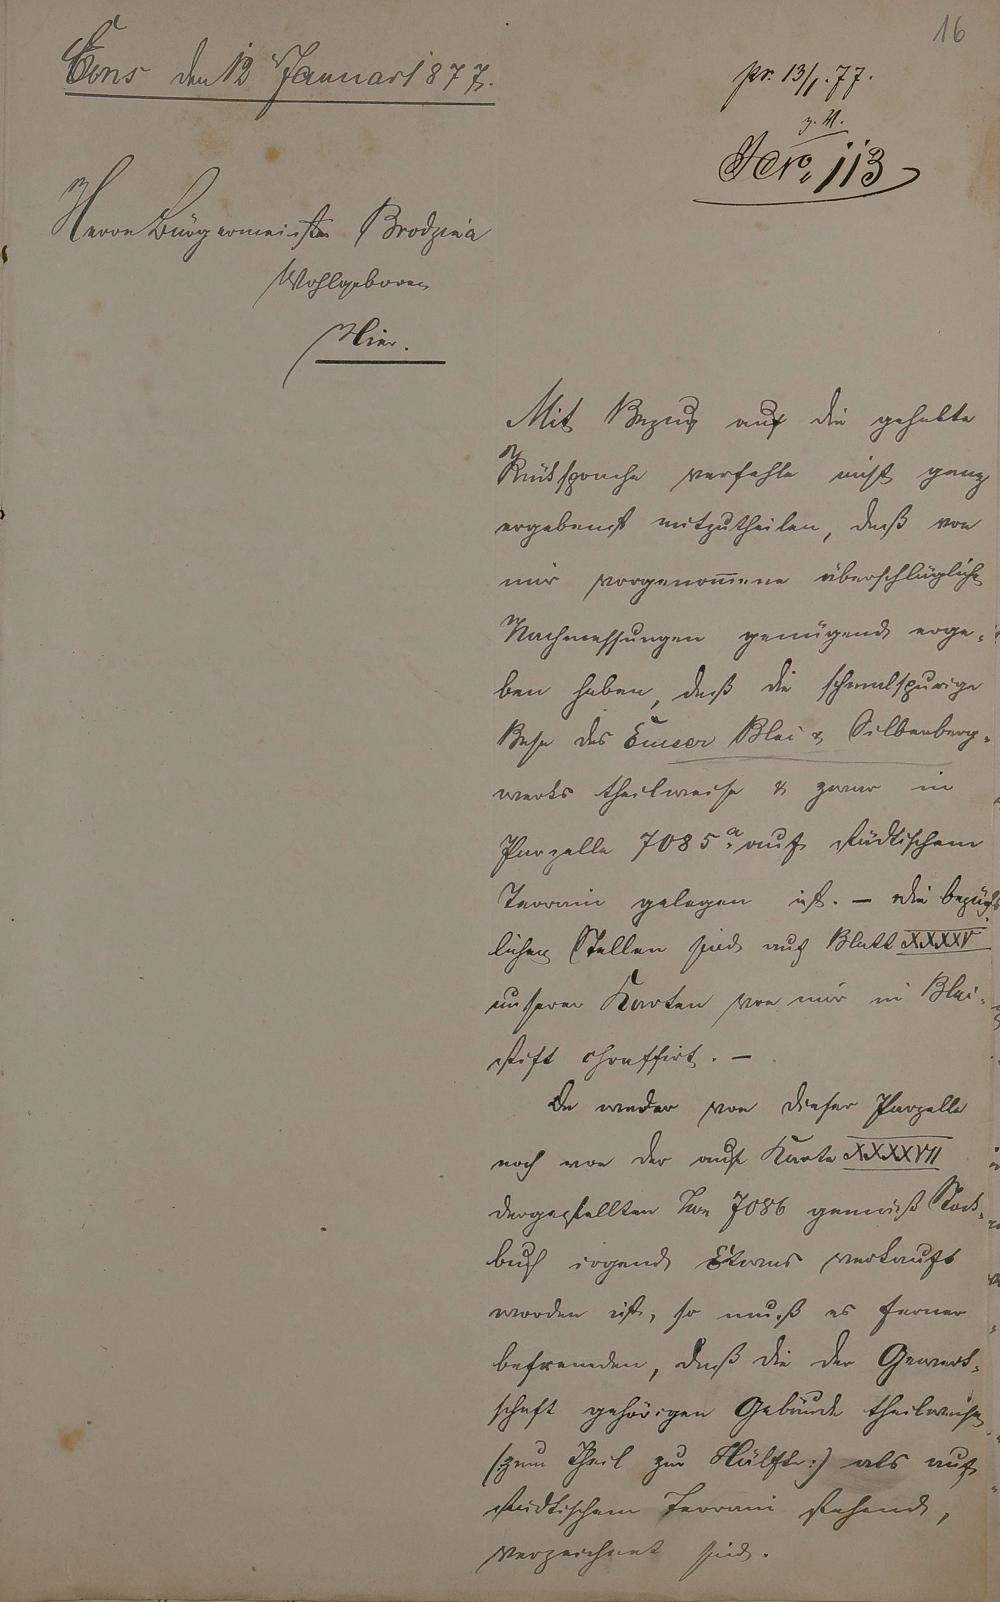 16
Ems den 12 Januar 1877.
pr. 13/1. 77.
Scr. 113
Herrn Bürgermeister
Wohlgeboren
Hier.
Mit Bezug auf die gehabte
Rüksprache verfehle nicht ganz
ergebenst mitzutheilen, daß von
mir vorgenom̅ene überschlägliche
Nachmessungen genügend erge-
ben haben, daß die schmalspurige
Bahn des Emser Blei & Silberberg-
werks theilweise & zwar in
Parzelle 7085a auf städtischem
Terrain gelegen ist. — Die bezüg-
lichen Stellen sind auf Blatt XXXXV
unserer Karten von mir in Blei-
stift schraffirt. —
Da weder von dieser Parzelle
noch von der auf Karte XXXXVII
dargestellten 7086 gemäß Stock-
buch irgend Etwas verkauft
worden ist, so muß es ferner
befremden, daß die der Gewerk-
schaft gehörigen Gebäude theilweise
(:zum Theil zur Hälfte:) als auf
städtischem Terrain stehend,
verzeichnet sind.